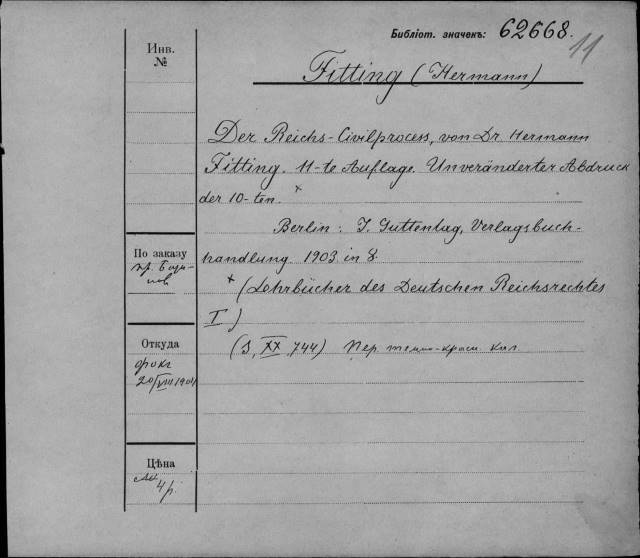 Библіот. значекъ: 62668.
11
Инв.
№
Fitting (Hermann)
Der Reichs-Civilprocess, von Dr. Hermann
Fitting. 11-te Auflage. Unveränderter Abdruck
der 10-ten. x
Berlin: J. Guttentag, Verlagsbuch-
handlung 1903 in 8.
x (Lehrbücher des Deutschen Reichsrechtes
I)
(S, XX, 744) Пер. темно-красн. кол.
По заказу
пр.
Откуда
фокг
20/VIII 1904
Цѣна
4 р.